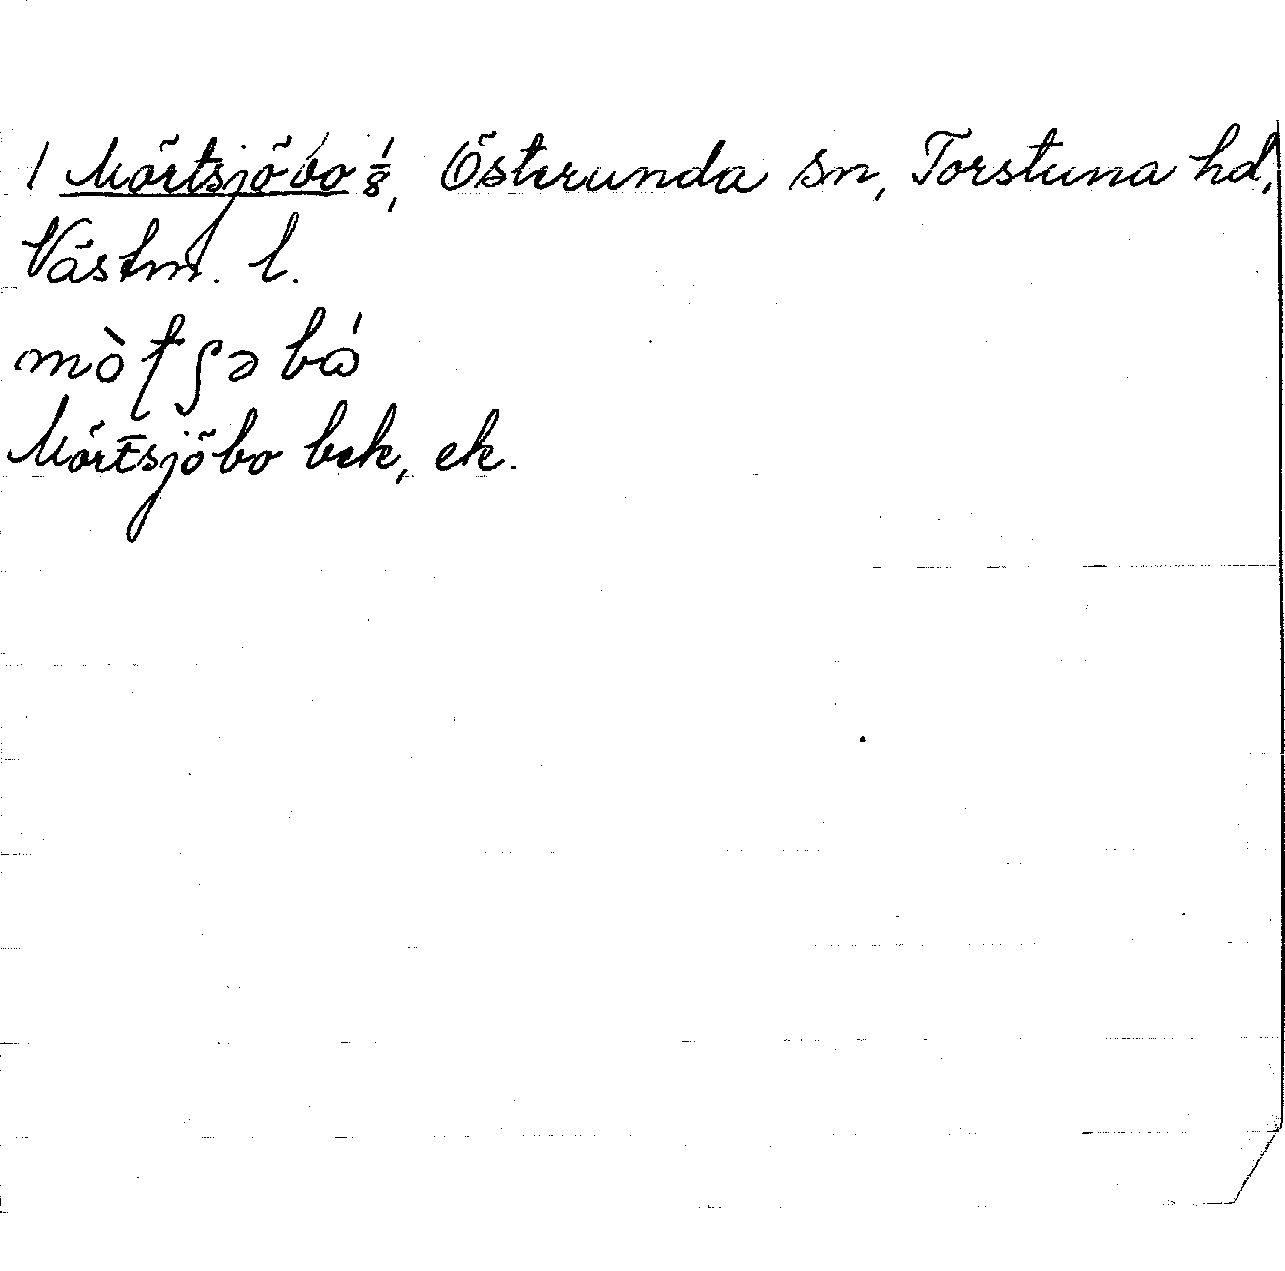 1 Mörtsjöbo 1/8, Österunda sn, Torstuna hd,
Västm. l.
mòƭʃəbɷ́
Mörtsjöbo bek, ek.